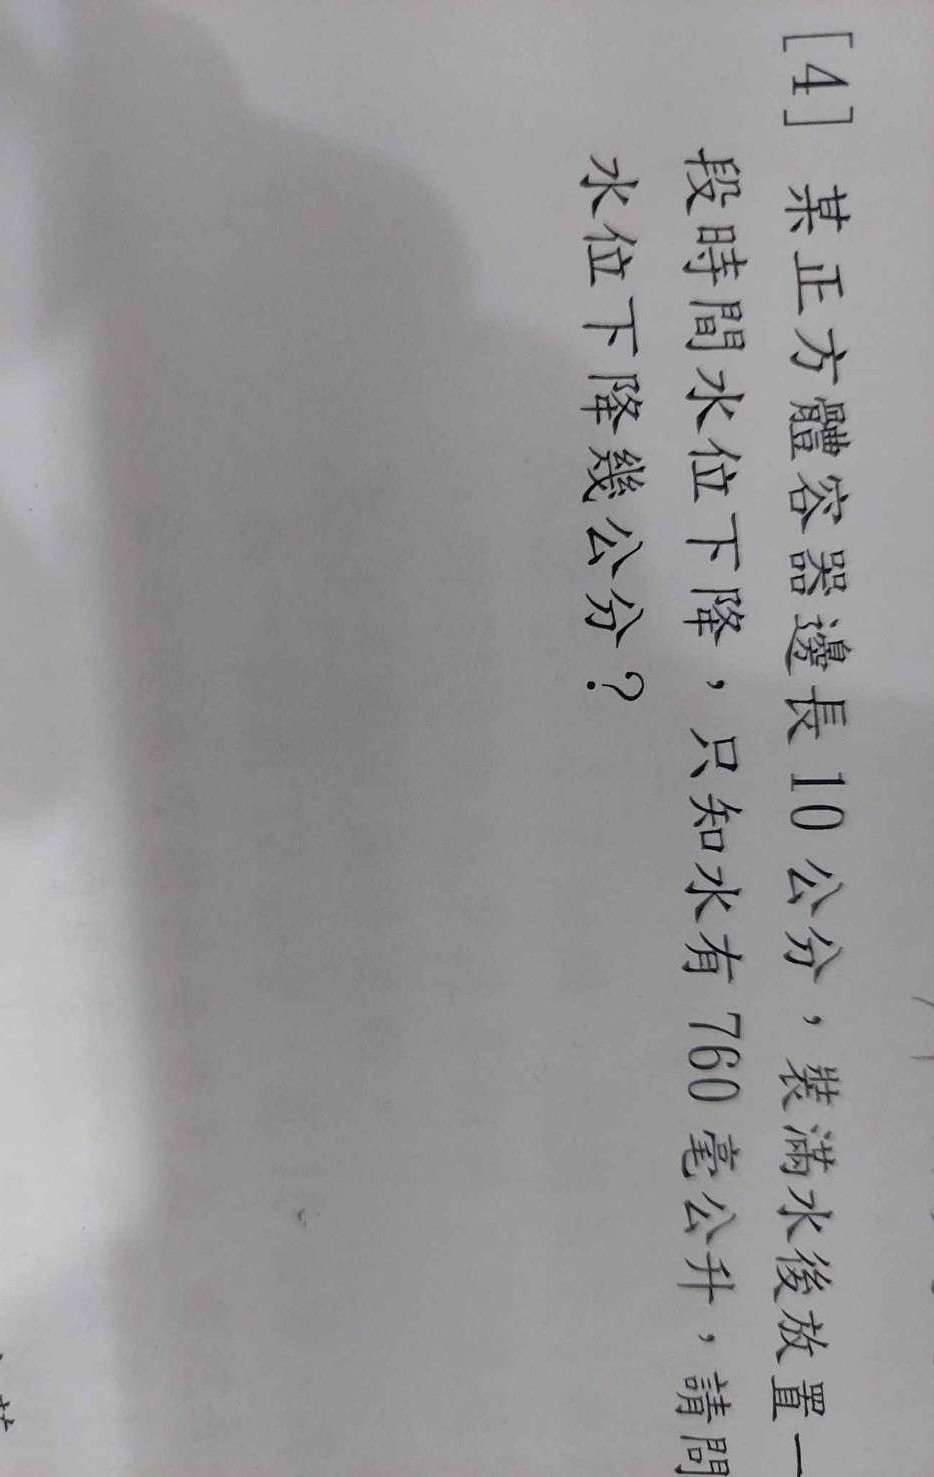 [4] 某正方體容器邊長 10 公分，裝滿水後放置一
段時間水位下降，只知水有 760 毫公升，請問
水位下降幾公分？